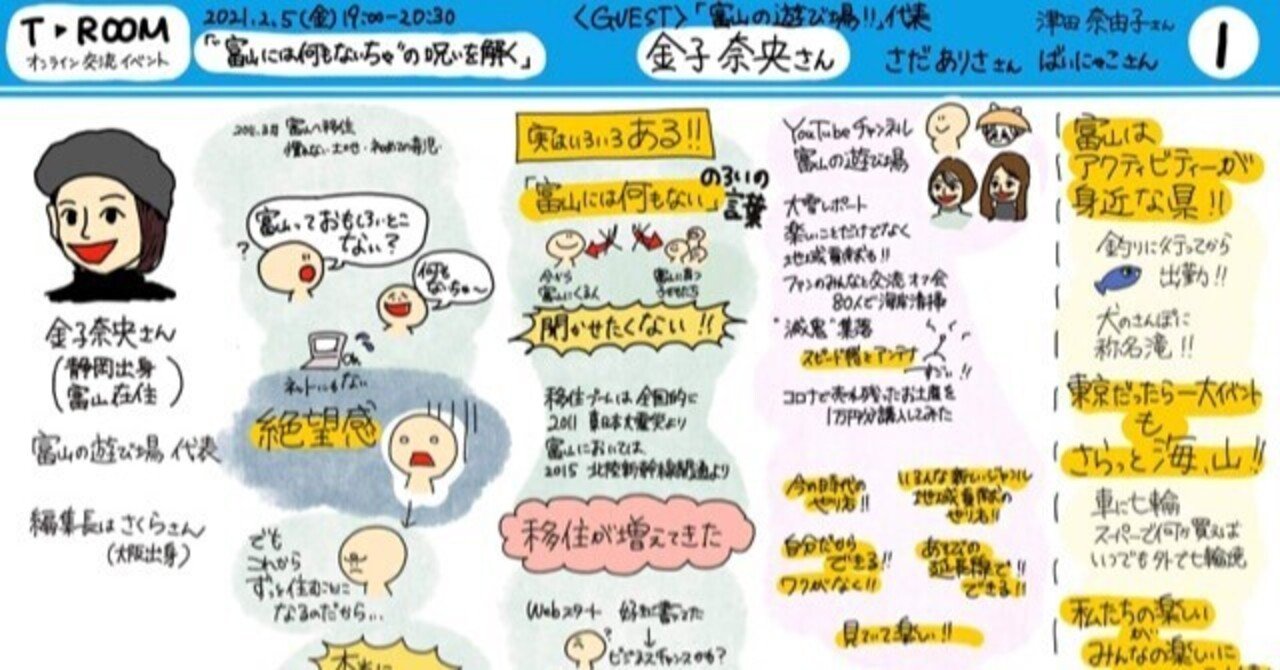 T▶ROOM
オンライン交流イベント
2021.2.5(金)19:00-20:30
「"富山には何もないちゃ"の呪いを解く」
<GUEST>「富山の遊び場!!」代表
金子奈央さん
さだありささん
津田奈由子さん
ばいにゃこさん
1
金子奈央さん
(静岡出身
富山在住)
富山の遊び場 代表
編集長はさくらさん
(大阪出身)
富山へ移住
慣れない土地・初めての育児
富山っておもしろいとこ
ない?
?
何も
ないちゃ〜
ネットにもない
絶望感
でも
これから
ずっと住むことに
なるのだから…
本当に
実はいろいろある!!
「富山には何もない」
のろいの
言葉
今から
富山にくる人
富山に育つ
子どもたち
聞かせたくない!!
移住ブームは全国的に
2011 東日本大震災より
富山においては
2015 北陸新幹線開通より
移住が増えてきた
Webスタート
ビジネスチャンスかも?
YouTubeチャンネル
富山の遊び場
大雪レポート
楽しいことだけでなく
地域貢献も!!
ファンのみんなと交流オフ会
80人で海岸清掃
"滅鬼"集落
スピード感とアンテナ
すごい!!
コロナで売れ残ったお土産を
1万円分購入してみた
今の時代の
やり方!!
いろんな新しいジャンル
地域貢献の
やり方!!
自分だから
できる!!
ワクがなく!!
あそびの
延長線で
できる!!
見ていて楽しい!!
富山は
アクティビティーが
身近な県!!
釣りに行ってから
出勤!!
犬のさんぽに
称名滝!!
東京だったら一大イベント
も
さらっと海、山!!
車に七輪
スーパーで何か買えば
いつでも外で七輪焼
私たちの楽しい
が
みんなの楽しいに